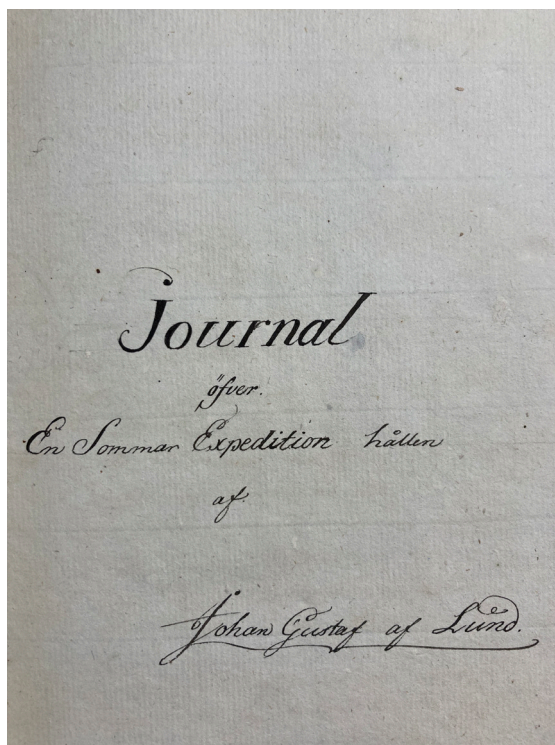 Journal
öfver.
En Sommar Expedition hållen
af.
Johan Gustaf af Lund.